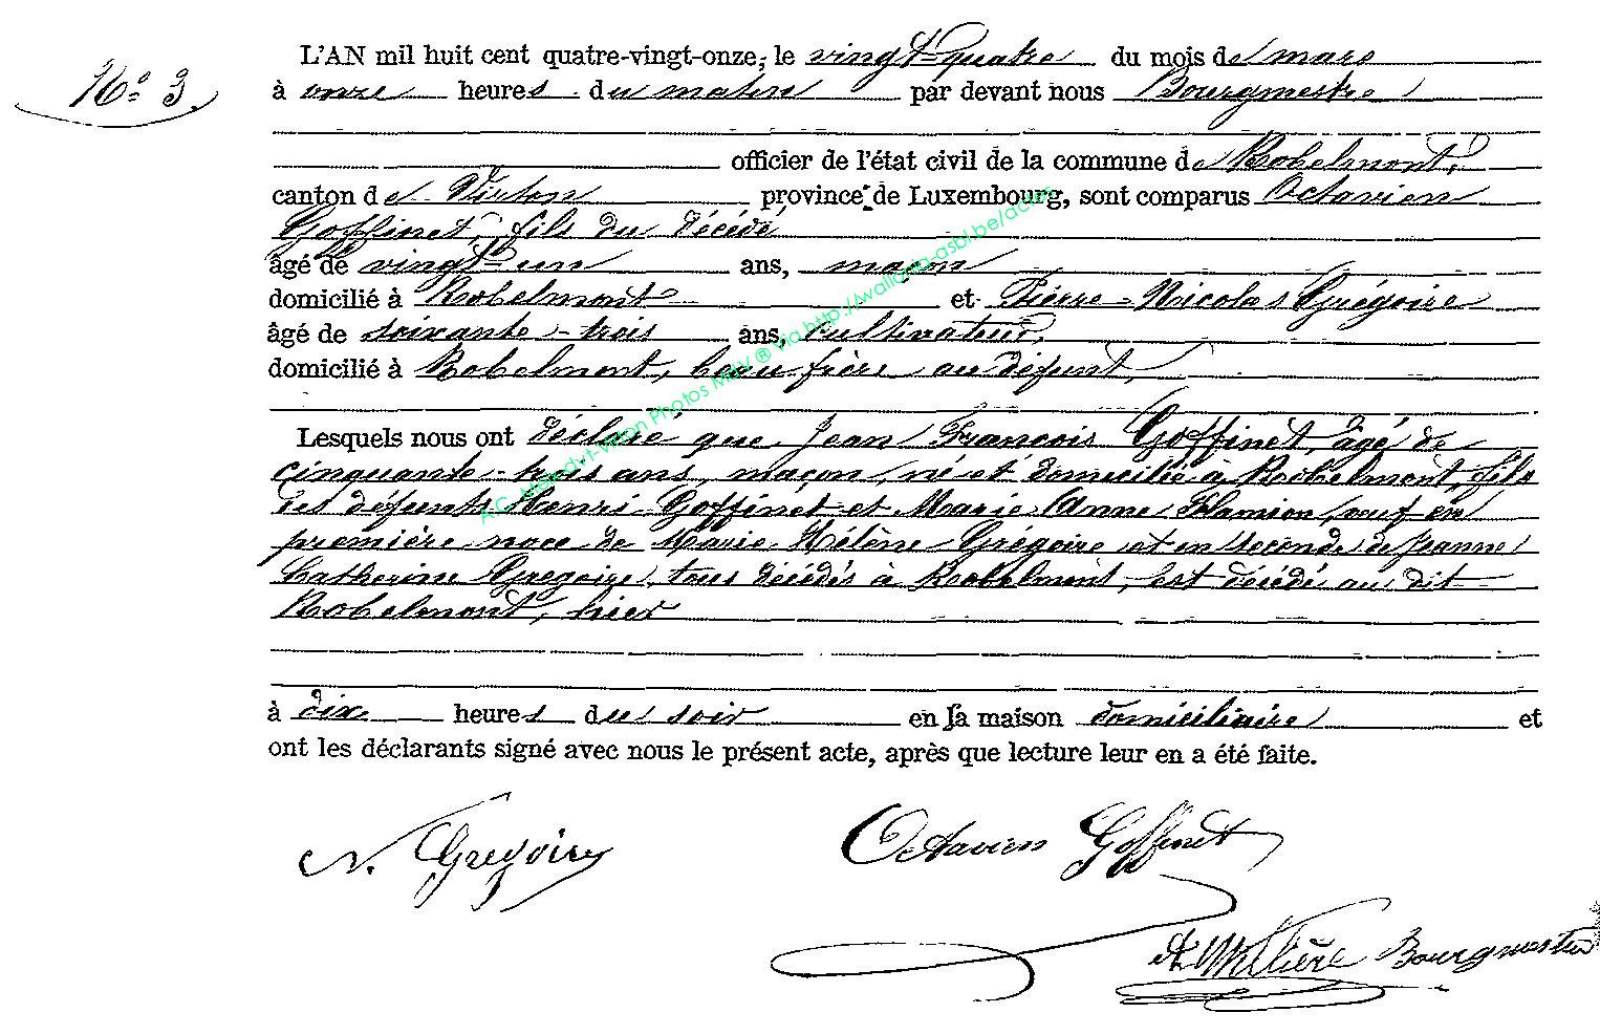 No. 3.
L'AN mil huit cent quatre-vingt-onze, le vingt-quatre du mois de mars
à onze heures du matin par devant nous Bourgmestre
officier de l'état civil de la commune de Robelmont,
canton de Virton province de Luxembourg, sont comparus Octavien
Goffinet, fils du décédé
âgé de vingt-un ans, maçon
domicilié à Robelmont et Pierre-Nicolas Grégoire
âgé de soixante-trois ans, cultivateur,
domicilié à Robelmont, beau frère au défunt,
Lesquels nous ont déclaré que Jean François Goffinet, âgé de
cinquante-trois ans, maçon, né et domicilié à Robelmont, fils
des défunts Henri Goffinet et Marie Anne Flamion, veuf en
première noce de Marie Hélène Grégoire et en seconde de Jeanne
Catherine Gregoire, tous décédés à Robelmont, est décédé au dit
Robelmont, hier
à dix heures du soir en sa maison domiciliaire et
ont les déclarants signé avec nous le présent acte, après que lecture leur en a été faite.
N. Gregoire Octavien Goffinet
Bourgmestre
Photos MDV ® via http://wallonia-asbl.be/actes